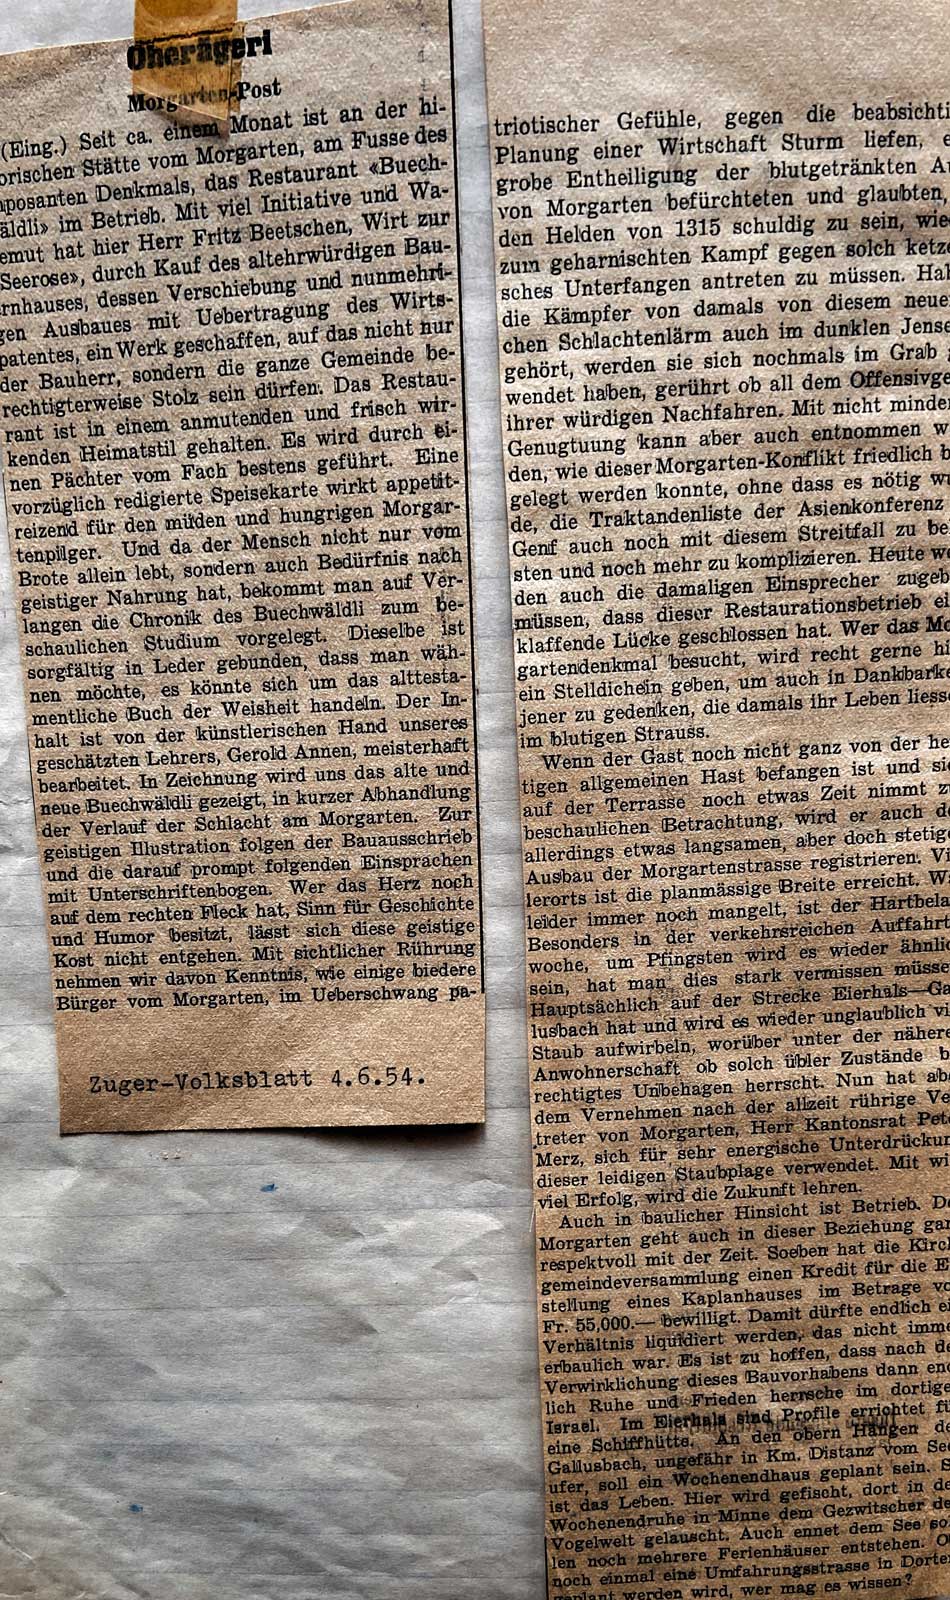 Oberägeri
Morgarten-Post
(Eing.) Seit ca. einem Monat ist an der hi-
orischen Stätte vom Morgarten, am Fusse des
mposanten Denkmals, das Restaurant «Buech-
äldli» im Betrieb. Mit viel Initiative und Wa-
emut hat hier Herr Fritz Beetschen, Wirt zur
Seerose», durch Kauf des altehrwürdigen Bau-
rnhauses, dessen Verschiebung und nunmehri-
gen Ausbaues mit Uebertragung des Wirts-
patentes, ein Werk geschaffen, auf das nicht nur
der Bauherr, sondern die ganze Gemeinde be-
rechtigterweise Stolz sein dürfen. Das Restau-
rant ist in einem anmutenden und frisch wir-
kenden Heimatstil gehalten. Es wird durch ei-
nen Pächter vom Fach bestens geführt. Eine
vorzüglich redigierte Speisekarte wirkt appetit-
reizend für den müden und hungrigen Morgar-
tenpilger. Und da der Mensch nicht nur vom
Brote allein lebt, sondern auch Bedürfnis nach
geistiger Nahrung hat, bekommt man auf Ver-
langen die Chronik des Buechwäldli zum be-
schaulichen Studium vorgelegt. Dieselbe ist
sorgfältig in Leder gebunden, dass man wäh-
nen möchte, es könnte sich um das alttesta-
mentliche Buch der Weisheit handeln. Der In-
halt ist von der künstlerischen Hand unseres
geschätzten Lehrers, Gerold Annen, meisterhaft
bearbeitet. In Zeichnung wird uns das alte und
neue Buechwäldli gezeigt, in kurzer Abhandlung
der Verlauf der Schlacht am Morgarten. Zur
geistigen Illustration folgen der Bauausschrieb
und die darauf prompt folgenden Einsprachen
mit Unterschriftenbogen. Wer das Herz noch
auf dem rechten Fleck hat, Sinn für Geschichte
und Humor besitzt, lässt sich diese geistige
Kost nicht entgehen. Mit sichtlicher Rührung
nehmen wir davon Kenntnis, wie einige biedere
Bürger vom Morgarten, im Ueberschwang pa-
Zuger-Volksblatt 4.6.54.
triotischer Gefühle, gegen die beabsichti
Planung einer Wirtschaft Sturm liefen, e
grobe Entheiligung der blutgetränkten A
von Morgarten befürchteten und glaubten,
den Helden von 1315 schuldig zu sein, wie
zum geharnischten Kampf gegen solch ketze
sches Unterfangen antreten zu müssen. Hal
die Kämpfer von damals von diesem neue
chen Schlachtenlärm auch im dunklen Jense
gehört, werden sie sich nochmals im Grab
wendet haben, gerührt ob all dem Offensivge
ihrer würdigen Nachfahren. Mit nicht minder
Genugtuung kann aber auch entnommen w
den, wie dieser Morgarten-Konflikt friedlich b
gelegt werden konnte, ohne dass es nötig wu
de, die Traktandenliste der Asienkonferenz
Genf auch noch mit diesem Streitfall zu be
sten und noch mehr zu komplizieren. Heute we
den auch die damaligen Einsprecher zugeb
müssen, dass dieser Restaurationsbetrieb ei
klaffende Lücke geschlossen hat. Wer das Mo
gartendenkmal besucht, wird recht gerne hi
ein Stelldichein geben, um auch in Dankbarke
jener zu gedenken, die damals ihr Leben liesse
im blutigen Strauss.
Wenn der Gast noch nicht ganz von der heu
tigen allgemeinen Hast befangen ist und sic
auf der Terrasse noch etwas Zeit nimmt zu
beschaulichen Betrachtung, wird er auch de
allerdings etwas langsamen, aber doch stetige
Ausbau der Morgartenstrasse registrieren. Vi
lerorts ist die planmässige Breite erreicht. Wa
leider immer noch mangelt, ist der Hartbela
Besonders in der verkehrsreichen Auffahrt
woche, um Pfingsten wird es wieder ähnlic
sein, hat man dies stark vermissen müsse
Hauptsächlich auf der Strecke Eierhals—Ga
lusbach hat und wird es wieder unglaublich vi
Staub aufwirbeln, worüber unter der nähere
Anwohnerschaft ob solch übler Zustände b
rechtigtes Unbehagen herrscht. Nun hat abe
dem Vernehmen nach der allzeit rührige Ve
treter von Morgarten, Herr Kantonsrat Pete
Merz, sich für sehr energische Unterdrückun
dieser leidigen Staubplage verwendet. Mit wi
viel Erfolg, wird die Zukunft lehren.
Auch in baulicher Hinsicht ist Betrieb. De
Morgarten geht auch in dieser Beziehung gan
respektvoll mit der Zeit. Soeben hat die Kirch
gemeindeversammlung einen Kredit für die E
stellung eines Kaplanhauses im Betrage vo
Fr. 55,000.— bewilligt. Damit dürfte endlich ei
Verhältnis liquidiert werden, das nicht imme
erbaulich war. Es ist zu hoffen, dass nach de
Verwirklichung dieses Bauvorhabens dann end
lich Ruhe und Frieden herrsche im dortige
Israel. Im Eierhals sind Profile errichtet fü
eine Schiffhütte. An den obern Hängen de
Gallusbach, ungefähr in Km. Distanz vom See
ufer, soll ein Wochenendhaus geplant sein. S
ist das Leben. Hier wird gefischt, dort in de
Wochenendruhe in Minne dem Gezwitscher de
Vogelwelt gelauscht. Auch ennet dem See sol
len noch mehrere Ferienhäuser entstehen. O
noch einmal eine Umfahrungsstrasse in Dorfe
geplant werden wird, wer mag es wissen?